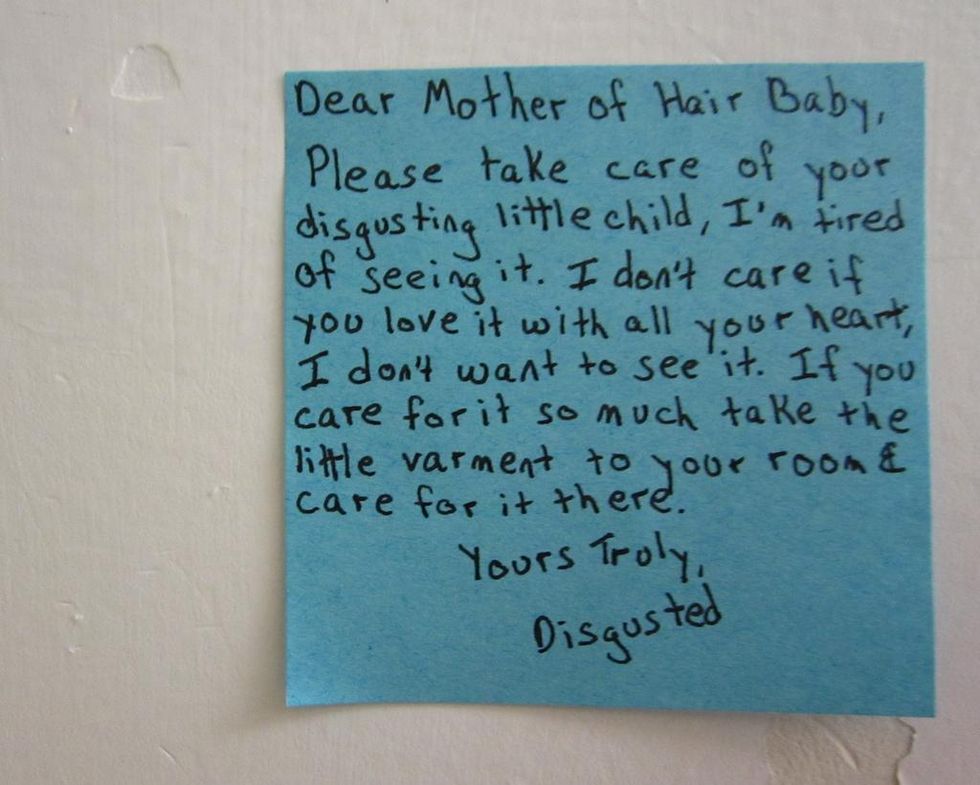 Dear Mother of Hair Baby,
Please take care of your
disgusting little child, I'm tired
of seeing it. I don't care if
you love it with all your heart,
I don't want to see it. If you
care for it so much take the
little varment to your room &
care for it there.
Yours Truly,
Disgusted